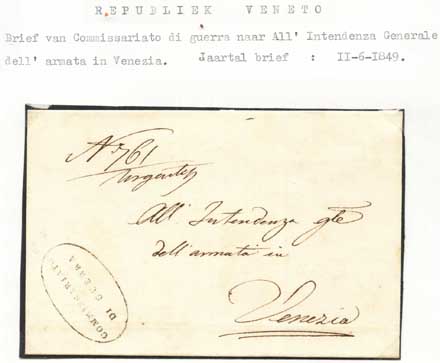 REPUBLIEK VENETO
Brief van Commissariato di guerra naar All' Intendenza Generale
dell' armata in Venezia. Jaartal brief : II-6-I849.
N° 761
Urgente
All' Intendenza gle
dell' armata in
Venezia
COMMISSARIATO
DI GUERRA